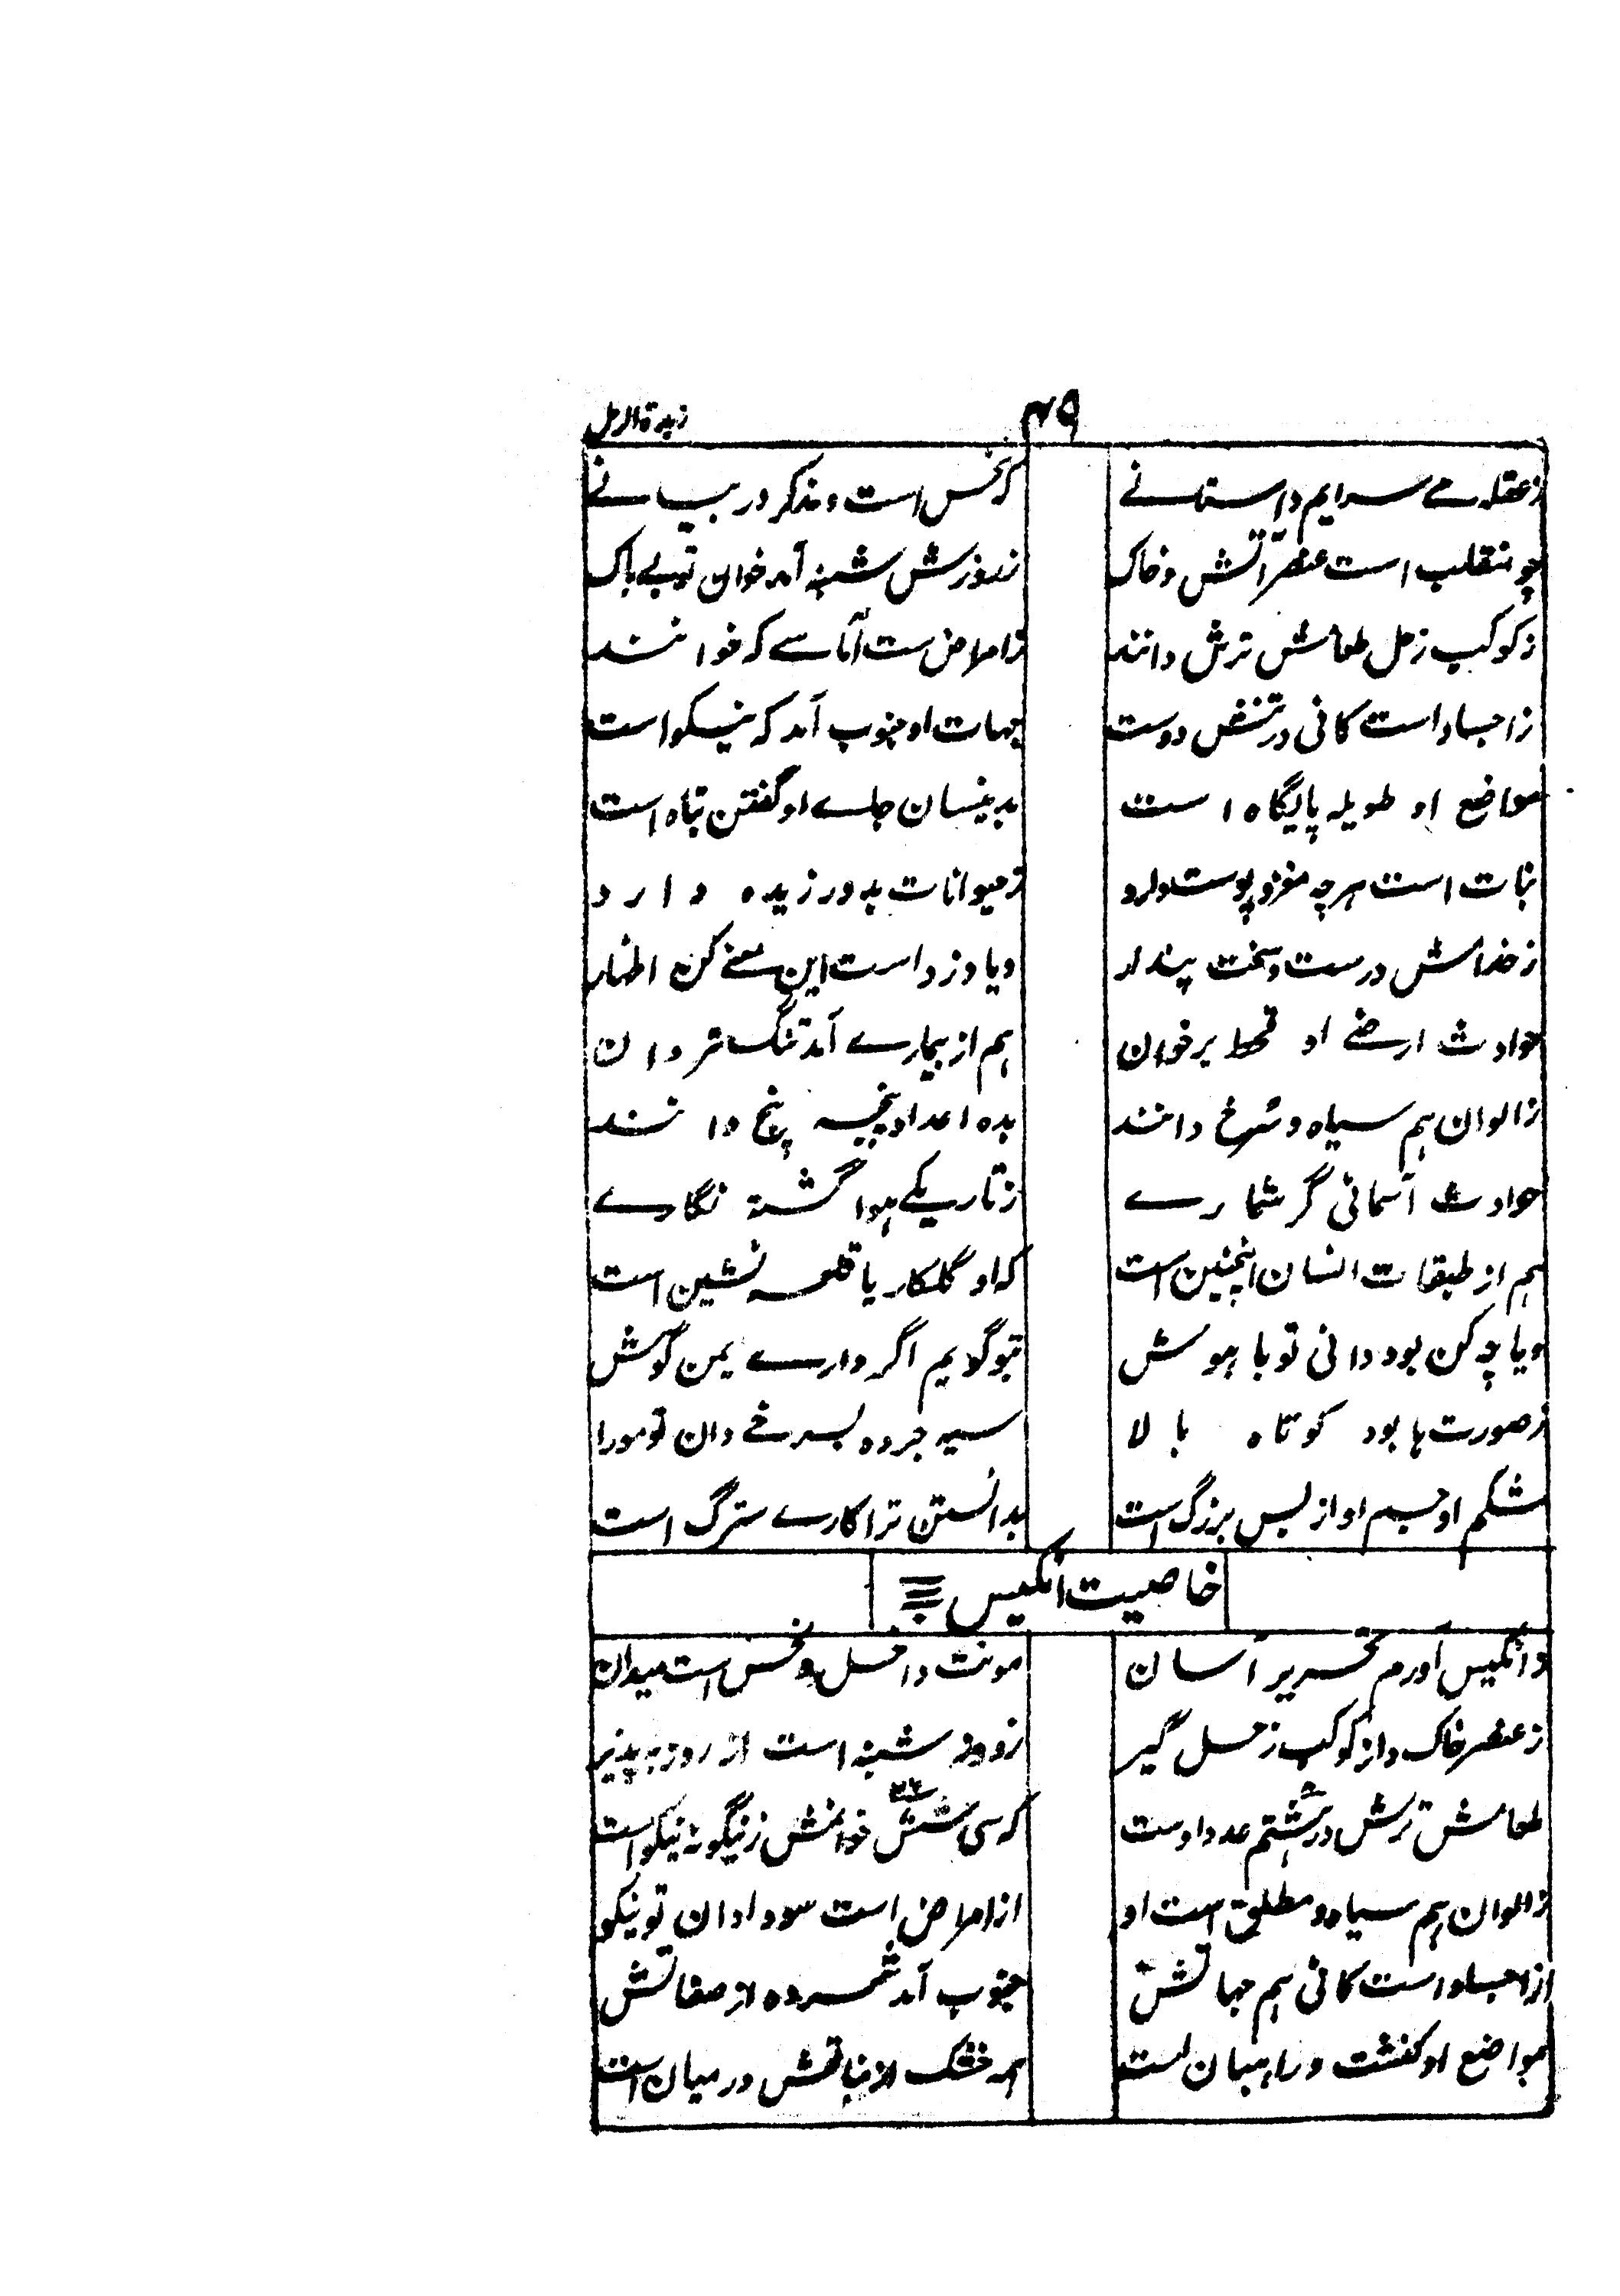 ۴۹ زبدة الرمل
ز عقله مے سرایم داستانے که نحس است و مذکر در بیانے
چو منقلب است عنصر آتش و خاک ز روزش شنبه آمد خوان تو بے باک
ز کوکب زحل طعامش ترش دانند ز امراض ست آماسے که خوانند
ز اجساد است کانی در تنفس دوست جهات او جنوب آمد که نیکو است
مواضع او طویله پایگاه است بدینسان جاے او گفتن تباه است
نبات است هرچه مغز و پوست دارد ز حیوانات بد ورزیده دارد
درست و سخت پندار و یا دزد است این معنے کن اظهار
حوادث ارضے او قحط بر خوان هم از بیمارے آمد
ز الوان هم سیاه و سرخ دانند بده اعداد پنجه پنج دانند
حوادث آسمانی گر شمارے ز تاریکے هوا گشته نگارے
هم از طبقات انسان اینچنین است که او گلکار یا قلعه نشین است
و یا چه کن بود دانی تو با هوش بتو گویم اگر دارے بمن گوش
ز صورت ها بود کوتاه بالا سیه جرده بسرخے دان تو مورا
شکم او جسم او از بس بزرگ است بدانستن ترا کارے سترگ است
خاصیت انکیس
و انکیس آورم تحریر آسان مونث داخل و نحس است میدان
ز عنصر خاک و از کوکب زحل گیر ز روز شنبه است از روز به پذیر
طعامش ترش در هشتم عدد اوست که سی شش ۳۶ خوانمش زینگونه نیکو است
ز الوان هم سیاه و مطلق است او از امراض است سودا دان تو نیکو
از اجساد است کانی هم جهاتش جنوب آمد شمرده از صفاتش
مواضع او کنشت و راهبان است همه خشک از نباتش در میان است